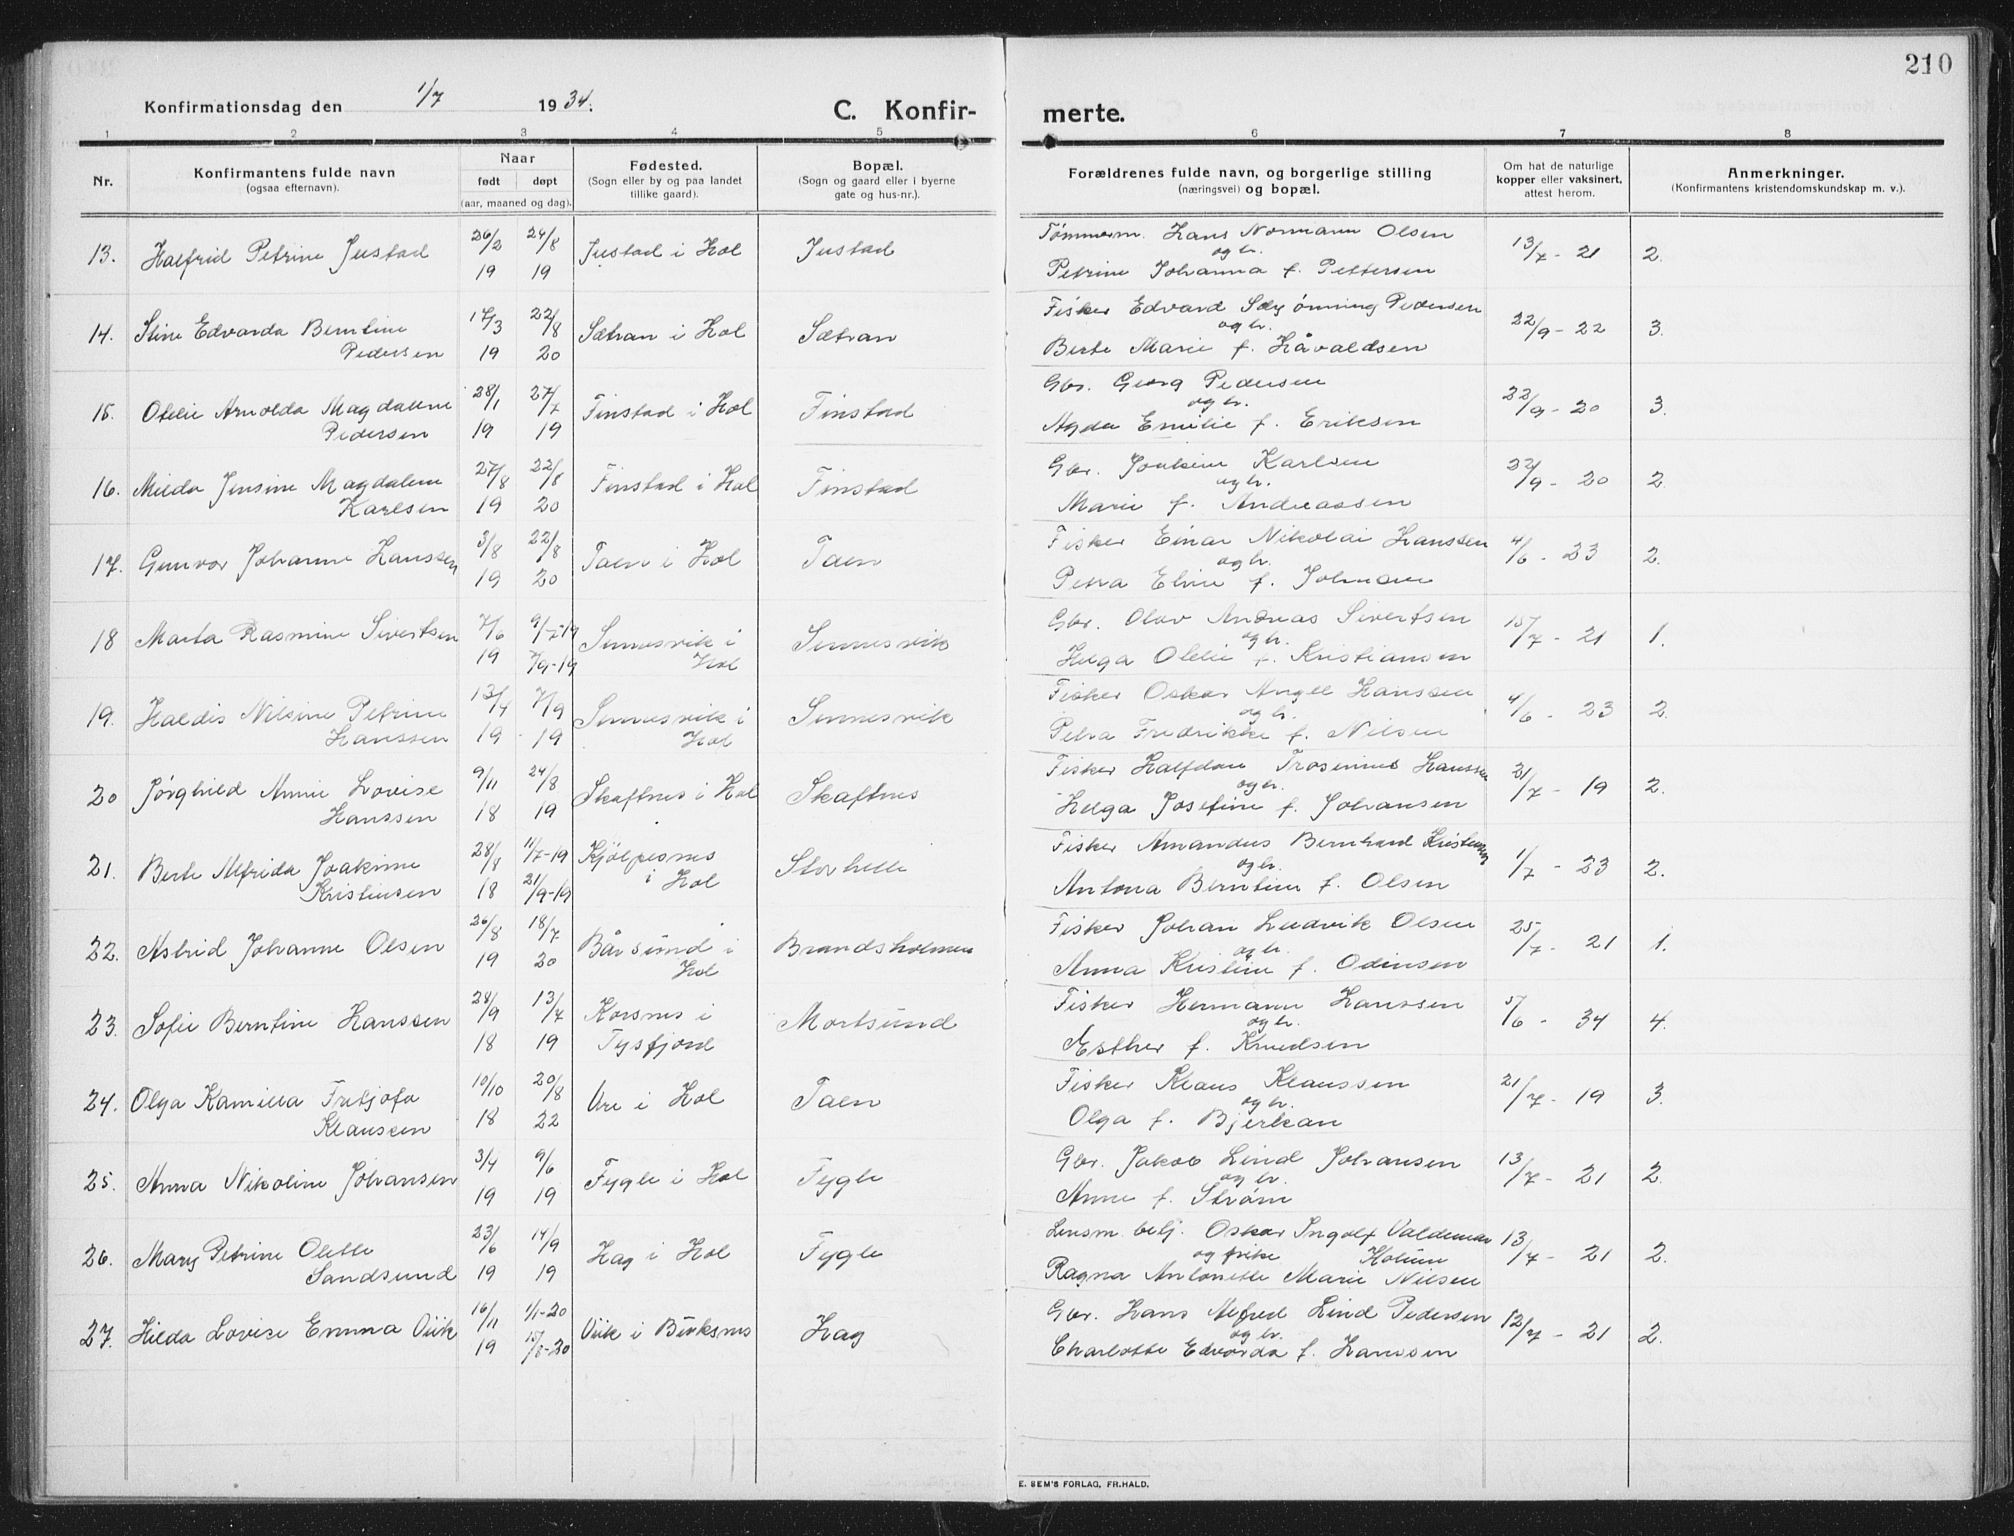 210
Konfirmationsdag den 1/7 1934.
C. Konfir-
merte.
1 2 3 4 5 6 7 8
Nr.
Konfirmantens fulde navn
(ogsaa efternavn).
Naar
født døpt
(aar, maaned og dag).
Fødested.
(Sogn eller by og paa landet
tillike gaard).
Bopæl.
(Sogn og gaard eller i byerne
gate og hus-nr.).
Forældrenes fulde navn, og borgerlige stilling
(næringsvei) og bopæl.
Om hat de naturlige
kopper eller vaksinert,
attest herom.
Anmerkninger.
(Konfirmantens kristendomskundskap m. v.).
13. Halfrid Petrine Justad 26/2 19 24/8 19 Justad i Hol Justad
Tømmerm. Hans Normann Olsen
og h.
Petrine Johanna f. Pettersen
13/7 - 21 2.
14. Stine Edvarda Berntine
Pedersen
17/3 19 22/8 20 Sætran i Hol Sætran
Fisker Edvard Sæbjønning Pedersen
og h.
Berte Marie f. Håvaldsen
22/9 - 22 3.
15. Otelie Arnolda Magdalene
Pedersen
28/1 19 27/7 19 Finstad i Hol Finstad
Gbr. Georg Pedersen
og h.
Agda Emilie f. Eriksen
22/9 - 20 3.
16. Milda Jensine Magdalene
Karlsen
27/8 19 22/8 20 Finstad i Hol Finstad
Gbr. Joakim Karlsen
og h.
Marie f. Andreassen
22/9 - 20 2.
17. Gunvor Johanne Hanssen 3/8 19 22/8 20 Taen i Hol Taen
Fisker Einar Nikolai Hanssen
og h.
Petra Eline f. Johnsen
4/6 - 23 2.
18 Marta Rasmine Sivertsen 7/6 19 9/7-19 7/9-19 Sennesvik i
Hol
Sennesvik
Gbr. Olav Andreas Sivertsen
og h.
Helga Otelie f. Kristiansen
15/7 - 21 1.
19. Haldis Nilsine Petrine
Hanssen
13/4 19 7/9 19 Sennesvik i
Hol
Sennesvik
Fisker Oskar Angell Hanssen
og h.
Petra Fredrikke f. Nilsen
4/6 - 23 2.
20 Jørghild Annie Lovise
Hanssen
9/11 18 24/8 19 Skaftnes i Hol Skaftnes
Fisker Halfdan Hanssen
og h.
Helga Josefine f. Johansen
21/7 - 19 2.
21. Berte Alfrida Joakime
Kristensen
28/8 18 11/7-19 21/9-19
i Hol
Storhelle
Fisker Amandus Bernhard Kristensen
og h.
Antona Berntine f. Olsen
1/7 - 23 2.
22. Astrid Johanne Olsen 26/8 19 18/7 20 Bårsund i
Hol
Brandsholmen
Fisker Johan Ludvik Olsen
og h.
Anna Kristine f. Odinsen
25/7 - 21 1.
23. Sofie Berntine Hanssen 28/9 18 13/7 19 Korsnes i
Tysfjord
Mortsund
Fisker Hermann Hanssen
og h.
Esther f. Knudsen
5/6 - 34 4.
24. Olga Kamilla Fritjofa
Klaussen
10/10 18 20/8 22 Ure i Hol Taen
Fisker Klaus Klaussen
og h.
Olga f. Bjerkan
21/7 - 19 3.
25. Anna Nikoline Johansen 3/4 19 9/6 19 Fygle i Hol Fygle
Gbr. Jakob Lind Johansen
og h.
Anne f. Strøm
13/7 - 21 2.
26. Mary Petrine Olette
Sandsund
23/6 19 14/9 19 Hag i Hol Fygle
Lensm. betj. Oskar Ingolf Valdemar
og frøke
Ragna Antonette Marie Nilsen
13/7 - 21 2.
27. Hilda Lovise Emma Viik 16/11 19 1/1-20 15/8-20 Viik i Buksnes Hag
Gbr. Hans Alfred Lind Pedersen
og h.
Charlotte Edvarda f. Hanssen
12/7 - 21 2.
E. SEM'S FORLAG, FR.HALD.